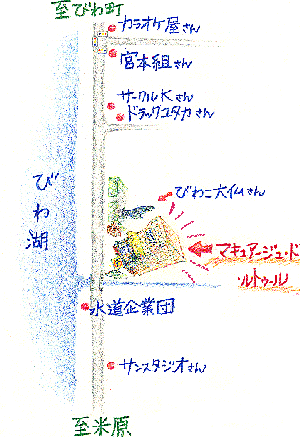 至びわ町
カラオケ屋さん
宮本組さん
サークルKさん
ドラックユタカさん
びわこ大仏さん
びわ湖
マキュアージュ・ド
・ルトゥール
水道企業団
サンスタジオさん
至米原